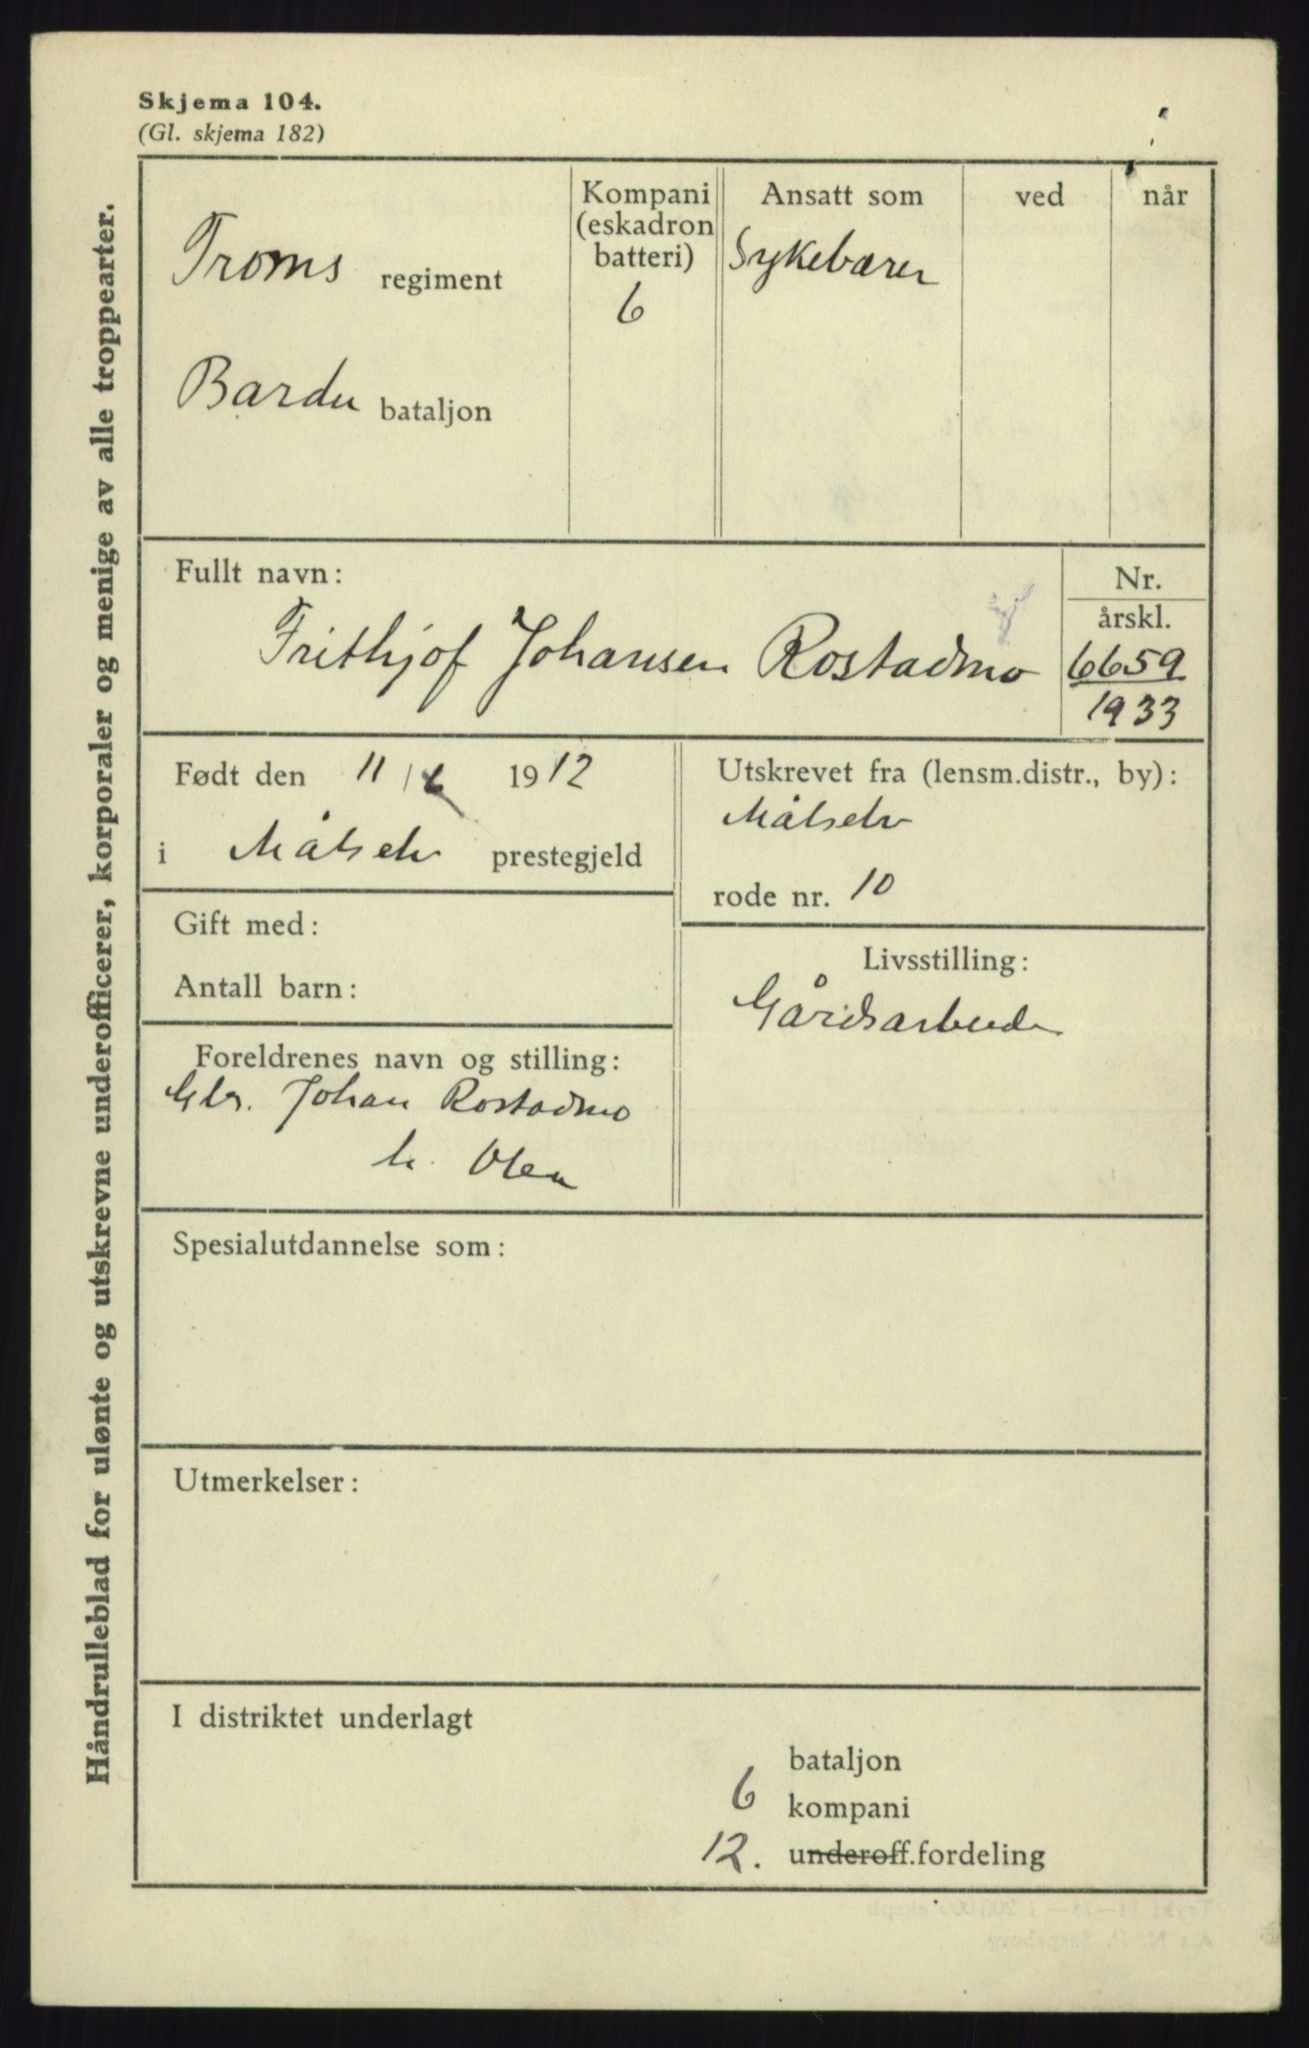 Skjema 104.
(Gl. skjema 182)
Håndrulleblad for ulønte og utskrevne underofficerer, korporaler og menige av alle troppearter.
Troms regiment
Bardu bataljon
Kompani
(eskadron
batteri)
6
Ansatt som
Sykebærer
ved
når
Fullt navn:
Frithjof Johansen Rostadmo
Nr.
årskl.
6659
1933
Født den 11/6 1912
i Målselv prestegjeld
Utskrevet fra (lensm.distr., by):
Målselv
rode nr. 10
Gift med:
Antall barn:
Livsstilling:
Gårdsarbeider
Foreldrenes navn og stilling:
Gbr. Johan Rostadmo
h. Olea
Spesialutdannelse som:
Utmerkelser:
I distriktet underlagt
bataljon
6 kompani
12. underoff.fordeling